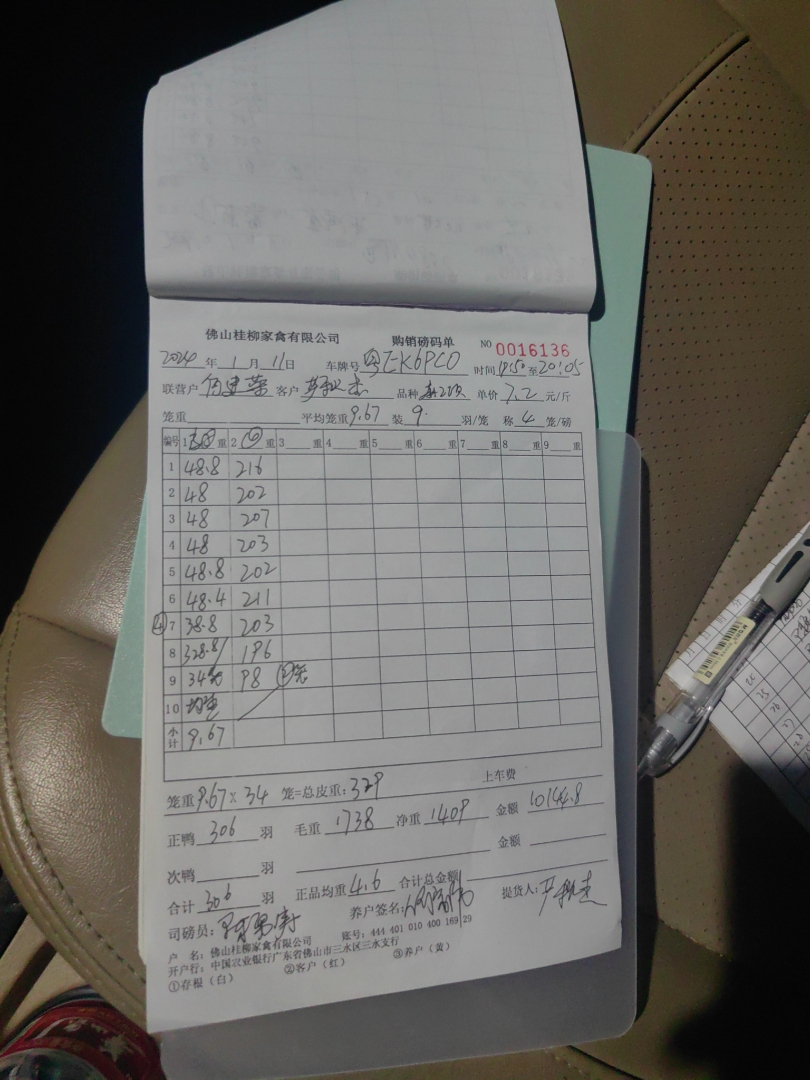 佛山桂柳家禽有限公司 购销磅码单 NO 0016136
2024 年 1 月 11 日 车牌号 粤E·K6PC0 时间 至 20:05
联营户 客户 品种 单价 7.2 元/斤
笼重 平均笼重 9.67 装 9 羽/笼 称 4 笼/磅
编号 1 重 2 重 3 重 4 重 5 重 6 重 7 重 8 重 9 重
1 48.8 216
2 48 202
3 48 207
4 48 203
5 48.8 202
6 48.4 211
④ 7 38.8 203
8 328.8 196
9 34笼 98 ②笼
10 均重
小计 9.67
笼重 9.67 x 34 笼=总皮重: 329 上车费
正鸭 306 羽 毛重 1738 净重 1409 金额 10144.8
次鸭 羽 金额
合计 306 羽 正品均重 4.6 合计总金额
司磅员: 养户签名: 提货人:
户 名: 佛山桂柳家禽有限公司 账号: 444 401 010 400 169 29
开户行: 中国农业银行广东省佛山市三水区三水支行
①存根（白） ②客户（红） ③养户（黄）